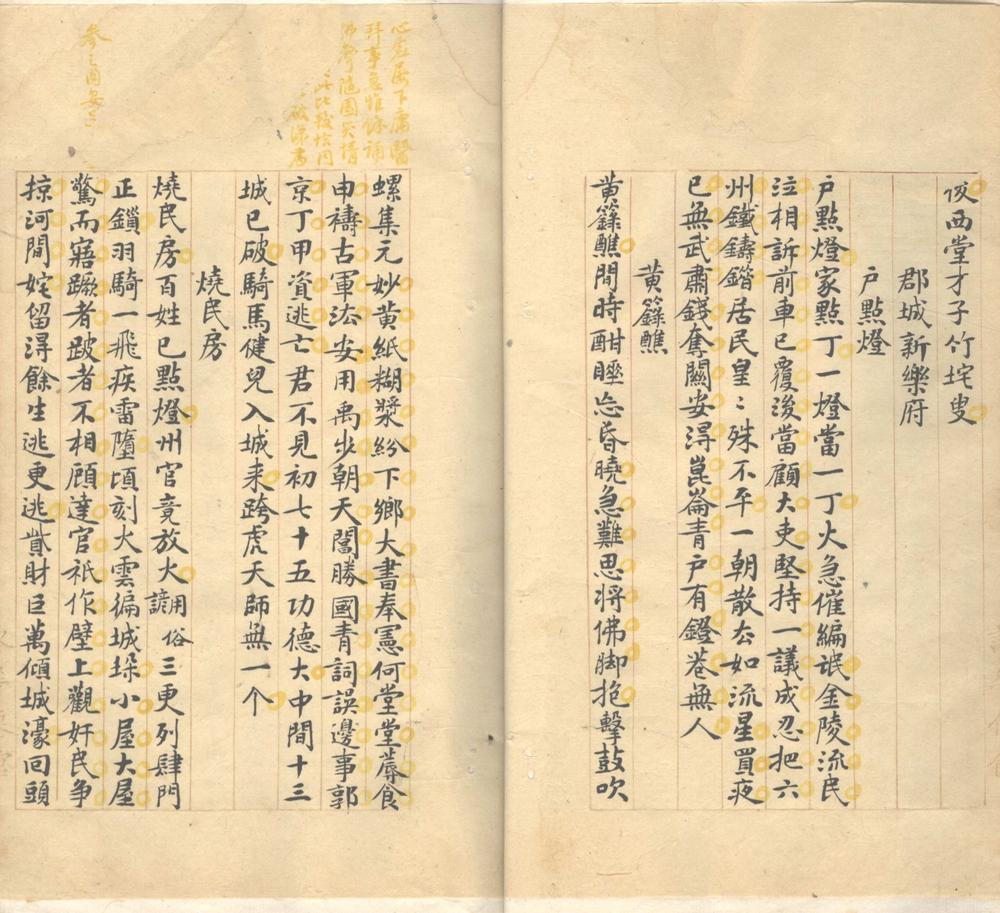 西堂才子竹垞叟
郡城新樂府
戶點燈
戶點燈家點丁一燈當一丁火急催編氓金陵流民
泣相訴前車已覆後當顧大吏堅持一議成忍把六
州鐵鑄錯居民皇〻殊不平一朝散去如流星買夜
已無武肅錢奪關安得崑崙青戶有鐙巷無人
黃籙醮
黃籙醮閒時酣睡忘昏曉急難思將佛脚抱擊鼓吹
螺集元妙黃紙糊漿紛下鄉大書奉憲何堂堂蓐食
申禱古軍法安用禹步朝天閶勝國青詞誤邊事郭
京丁甲資逃亡君不見初七十五功德大中間十三
城已破騎馬健兒入城来跨虎天師無一个
燒民房
燒民房百姓已點燈州官竟放火用俗諺三更列肆門
正鎖羽騎一飛疾雷墮頃刻火雲徧城垛小屋大屋
驚而寤蹶者跛者不相顧達官祇作壁上觀奸民爭
掠河間姹留得餘生逃更逃貲財巨萬傾城濠回頭
心下庸醫
拜事急惟
隨園
此比
破涕